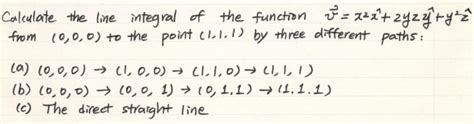 Calculate the line integral of the function v⃗ = x²x̂ + 2yzŷ + y²ẑ
from (0,0,0) to the point (1.1.1) by three different paths:
(a) (0,0,0) → (1,0,0) → (1,1,0) → (1,1,1)
(b) (0,0,0) → (0,0,1) → (0,1.1) → (1.1.1)
(c) The direct straight line